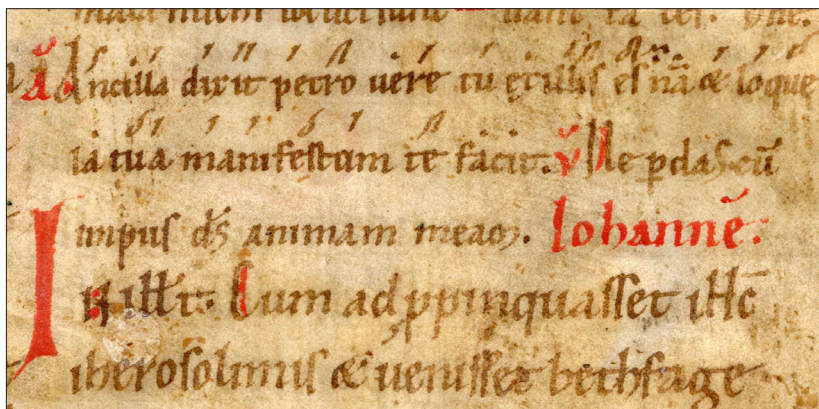 Ancilla dixit petro uere tu exillis es nā & loque
la tua manifestum te facit. v̄ Ne ꝑdas cū
impiis ds̄ animam meaꝫ. Iohannē.
IN illt̄. Cum ad ꝓpinquasset ih̄c
iherosolimis & uenisset bethfage